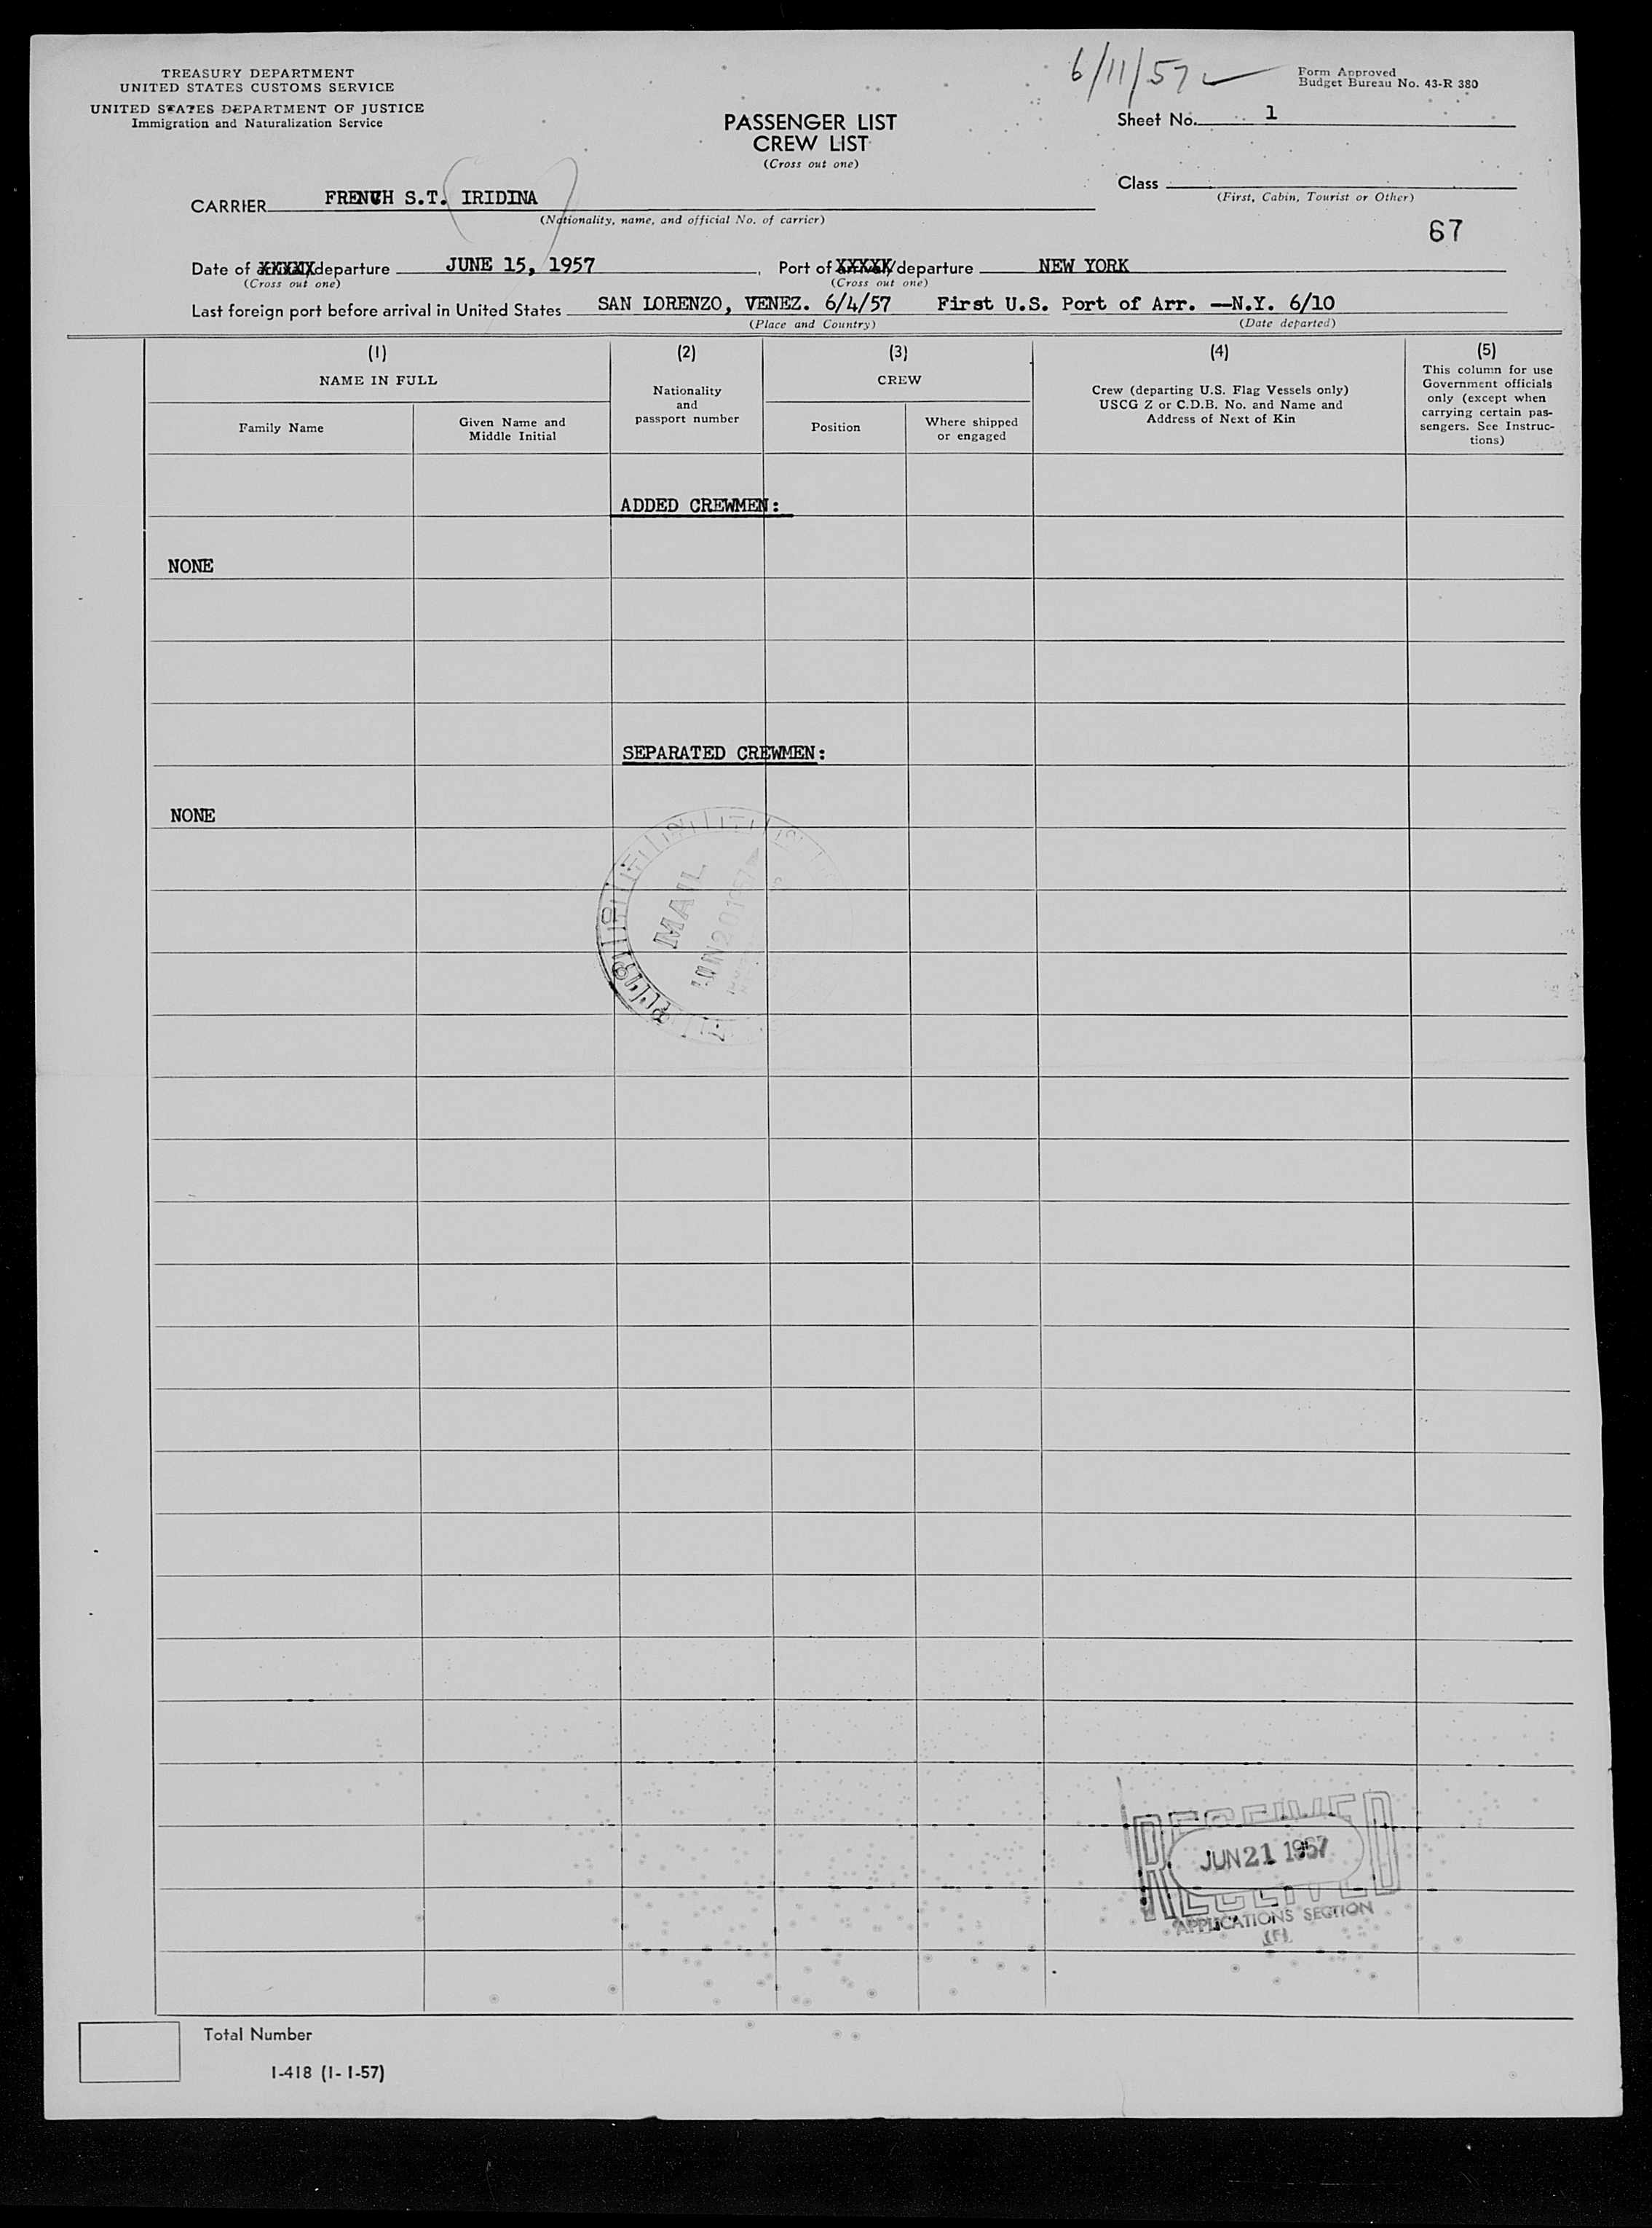 TREASURY DEPARTMENT
UNITED STATES CUSTOMS SERVICE
UNITED STATES DEPARTMENT OF JUSTICE
Immigration and Naturalization Service
6/11/57
Form Approved
Budget Bureau No. 43-R 380
PASSENGER LIST
CREW LIST
(Cross out one)
Sheet No. 1
Class
(First, Cabin, Tourist or Other)
CARRIER FRENCH S.T. IRIDINA
(Nationality, name, and official No. of carrier)
67
Date of arrival/departure JUNE 15, 1957, Port of arrival/departure NEW YORK
(Cross out one) (Cross out one)
Last foreign port before arrival in United States SAN LORENZO, VENEZ. 6/4/57 First U.S. Port of Arr. —N.Y. 6/10
(Place and Country) (Date departed)
(1)
NAME IN FULL
Family Name
Given Name and
Middle Initial
(2)
Nationality
and
passport number
(3)
CREW
Position
Where shipped
or engaged
(4)
Crew (departing U.S. Flag Vessels only)
USCG Z or C.D.B. No. and Name and
Address of Next of Kin
(5)
This column for use
Government officials
only (except when
carrying certain pas-
sengers. See Instruc-
tions)
ADDED CREWMEN:
NONE
SEPARATED CREWMEN:
NONE
MAIL
JUN 20 1957
RECEIVED
JUN 21 1957
RECEIVED
APPLICATIONS SECTION
Total Number
I-418 (1-1-57)